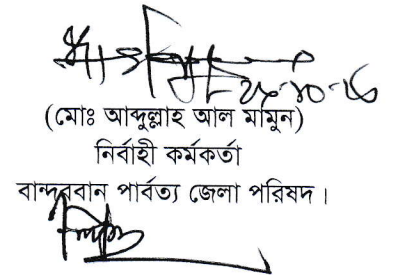 (মোঃ আব্দুল্লাহ আল মামুন)
নির্বাহী কর্মকর্তা
বান্দরবান পার্বত্য জেলা পরিষদ।